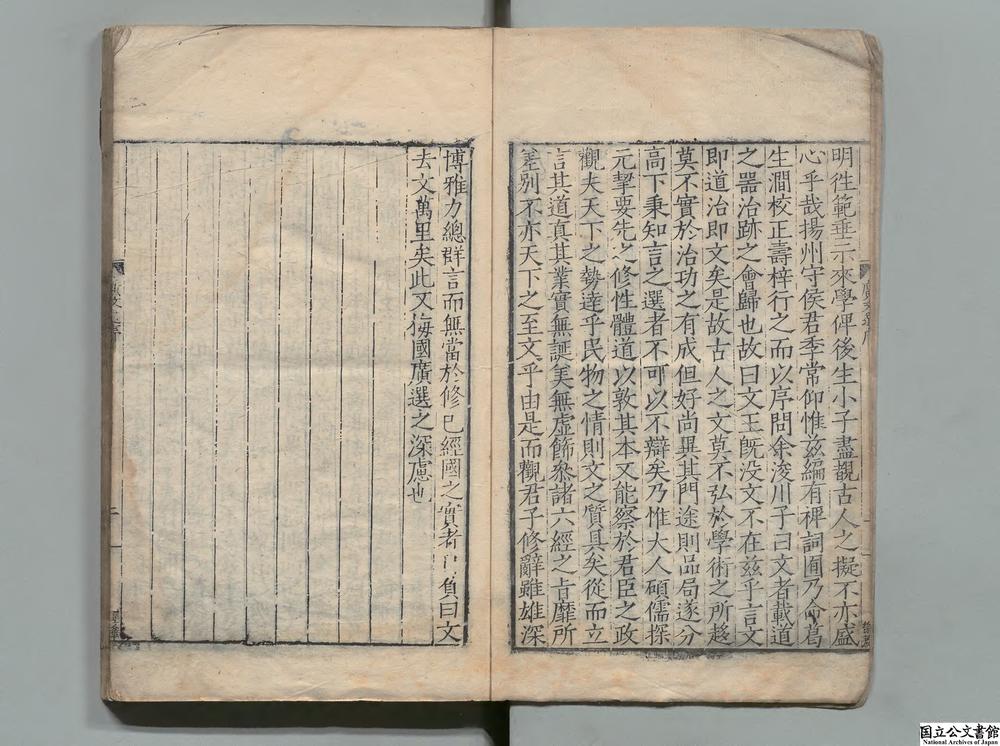 明徃範垂示來學俾後生小子盡覩古人之擬不亦盛
心乎哉揚州守侯君季常仰惟兹編有裨詞囿乃命葛
生澗校正壽梓行之而以序問余浚川子曰文者載道
之器治跡之會歸也故曰文王旣没文不在兹乎言文
即道治即文矣是故古人之文莫不弘於學術之所趍
莫不實於治功之有成但好尚異其門途則品局遂分
高下秉知言之選者不可以不辯矣乃惟大人碩儒探
元挈要先之修性體道以敦其本又能察於君臣之政
觀夫天下之勢達乎民物之情則文之質具矣從而立
言其道真其業實無誕美無虛飾叅諸六經之旨靡所
差別不亦天下之至文乎由是而觀君子修辭雖雄深
博雅力總群言而無當於修已經國之實者自負曰文
去文萬里矣此又梅國廣選之深慮也
廣文選序
二
國立公文書館
National Archives of Japan